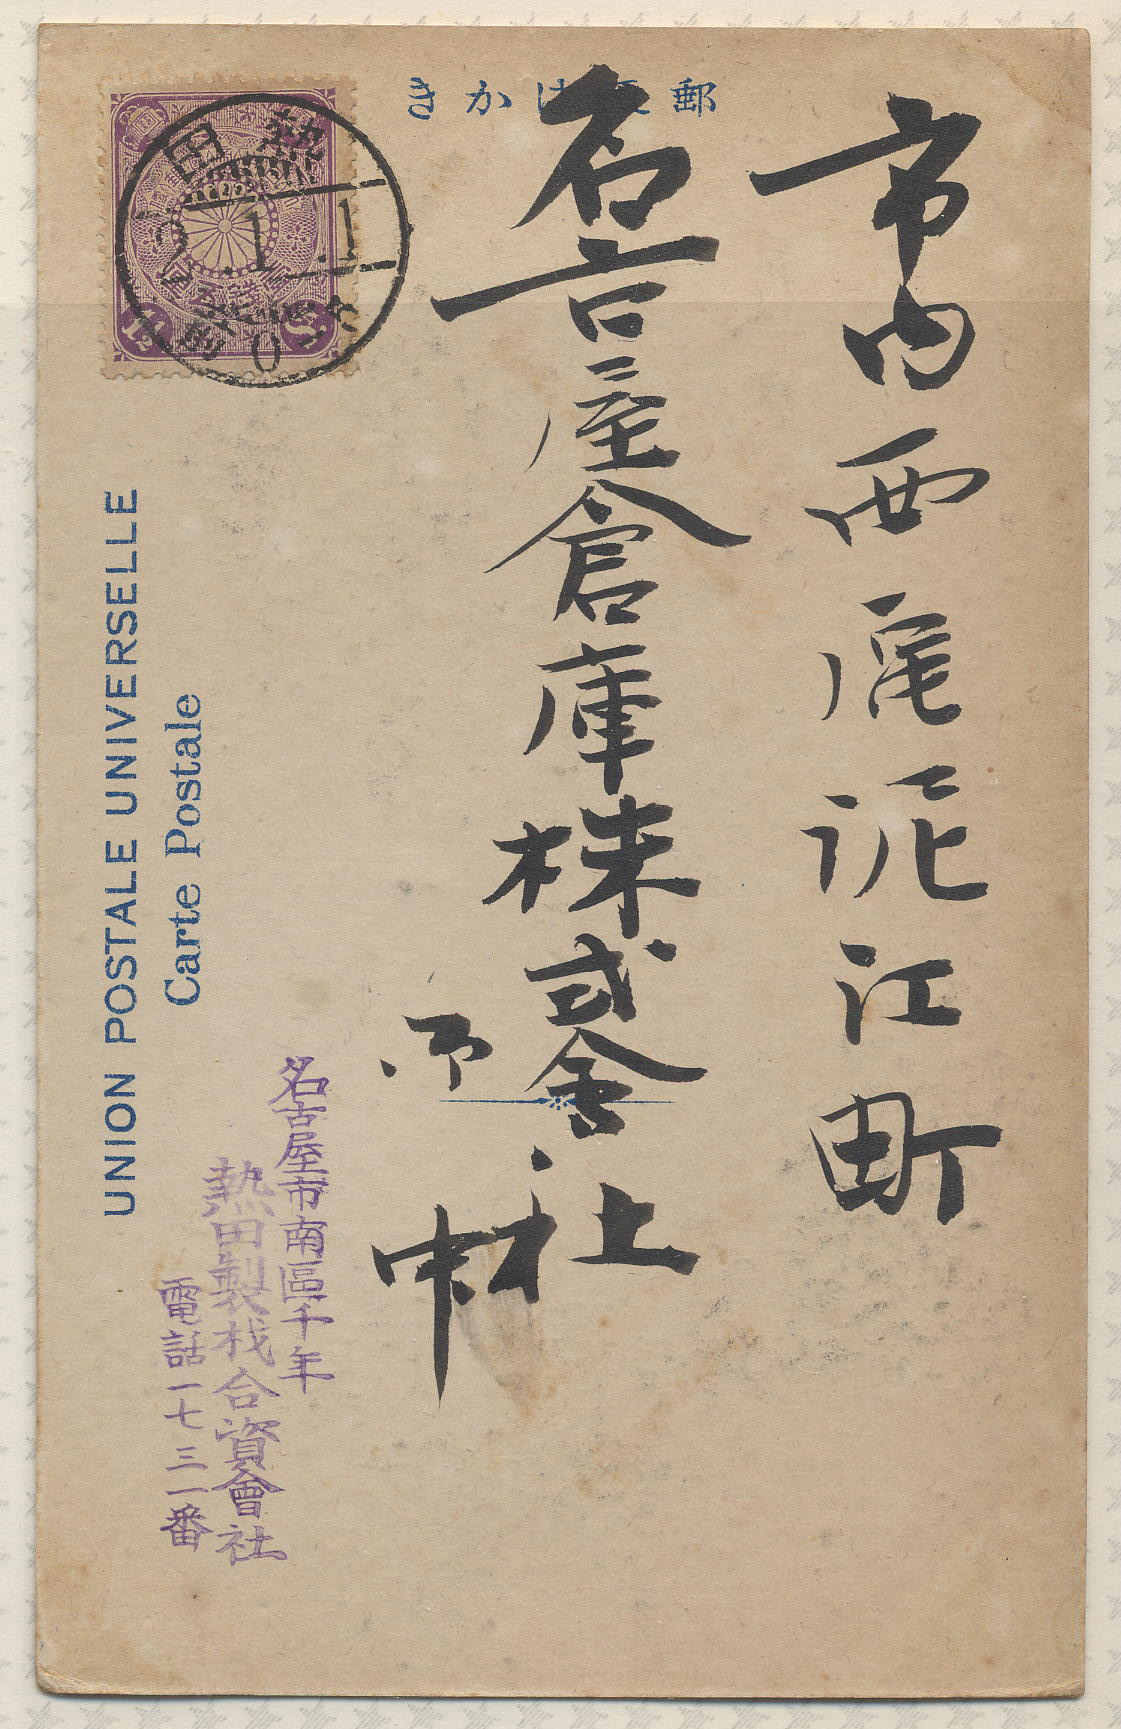 郵便はかき
市内西尾泥江町
名古屋倉庫株式会社
御中
熱田
2.1.1
前0-8
1½
UNION POSTALE UNIVERSELLE
Carte Postale
名古屋市南區千年
熱田製材合資會社
電話一七三一番